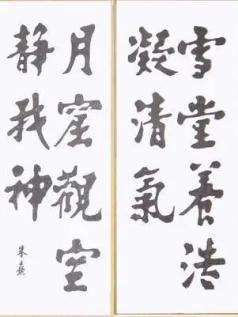 雪堂養浩
凝清氣
月窟觀空
靜我神
朱熹